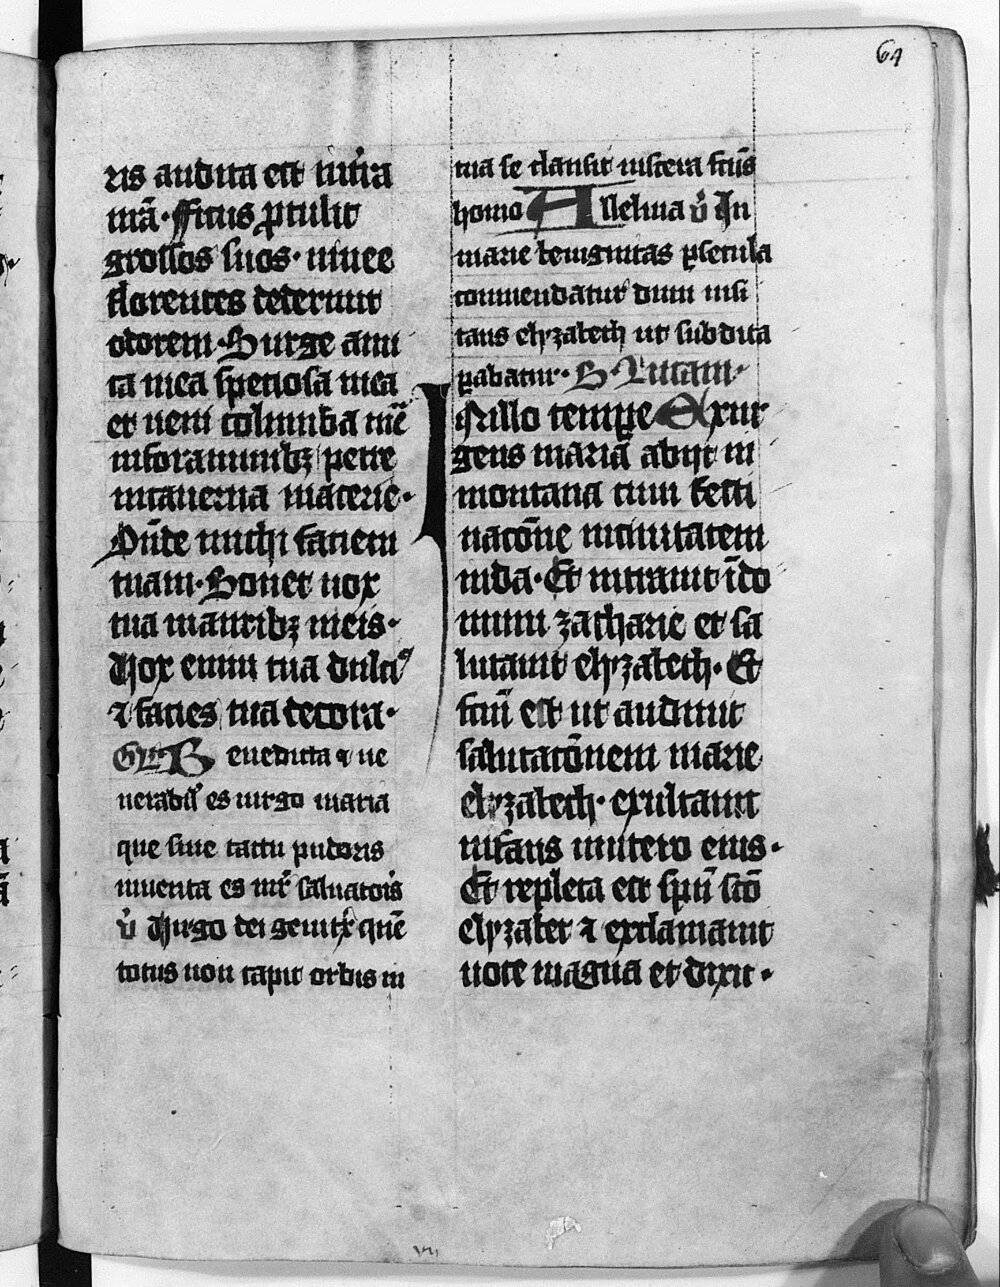 64
ris audita est in t'ra
nr̄a. Ficus ꝓtulit
grossos suos. vinee
florentes dederunt
odorem. Surge ami
ca mea speciosa mea
et veni columba mē
in foraminibꝫ petre
in caverna macerie.
Oñde michi faciem
tuam. Sonet vox
tua in auribꝫ meis.
Vox enim tua dulcꝰ
⁊ facies tua decora.
Gr̄ Benedicta ⁊ ve
nerabil' es virgo maria
que sine tactu pudoris
inventa es mr̄ salvatoris
v̓ Virgo dei genitx̓ quē
totus non capit orbis in
tua se clausit viscera fc̄us
homo Allelvia v̓ In
marie benignitas ꝑ secula
commendatur dum visi
tans elyzabeth ut subdita
ꝑabatur. S. Lucam.
In illo tempe Exur
gens maria abijt in
montana cum festi
nacōne in civitatem
iuda. Et intravit ī do
mum zacharie et sa
lutavit elyzabeth. Et
fcm̄ est ut audivit
salutacōnem marie
elyzabeth. exultavit
infans in utero eius.
Et repleta est spū scō
elyzabet ⁊ exclamavit
voce magna et dixit.
vij